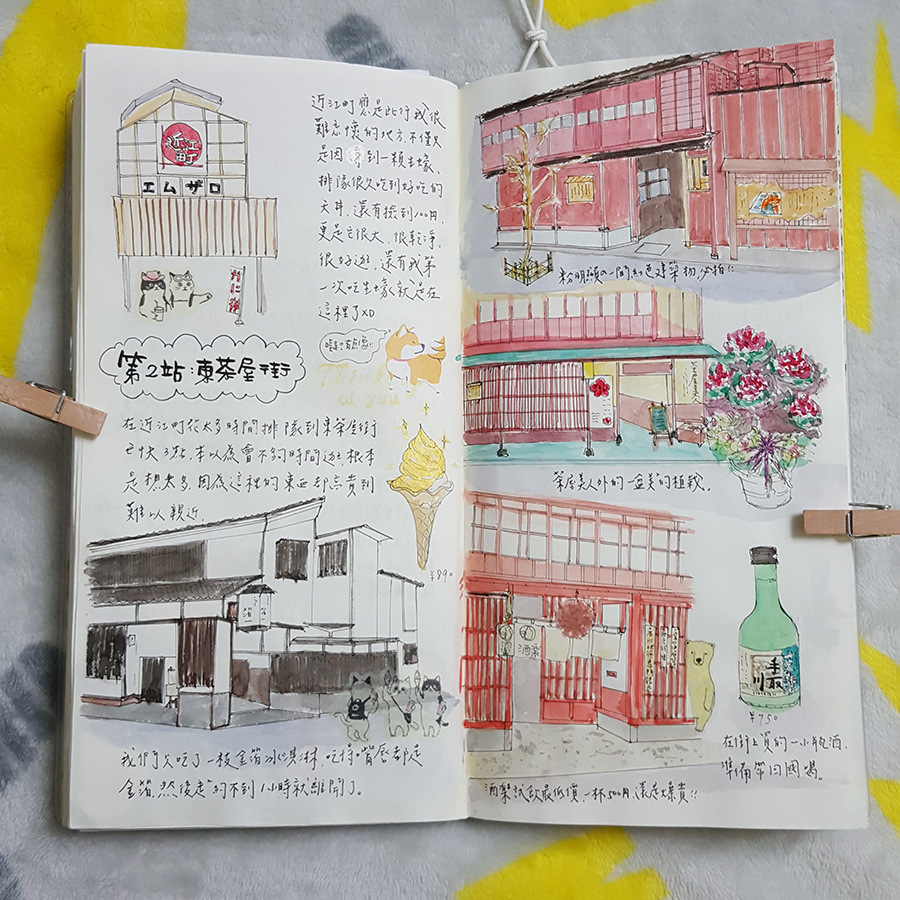 近江
町
エムザロ
近江町應是此行我很
難忘懷的地方,不僅只
是因 到一顆生蠔、
排隊很久吃到好吃的
大丼,還有撿到100円,
更是它很大,很乾淨,
很好逛,還有我第
一次吃生蠔就是在
這裡了XD
第2站:東茶屋街
在近江町花太多時間排隊,到東茶屋街
已快3點,本以為會不夠時間逛,根本
是想太多,因為這裡的東西都高貴到
難以親近。
¥890
我們只吃了一枝金箔冰淇淋,吃得嘴唇都是
金箔,然後走約不到1小時就離開了。
很明顯的一間紅色建築物,必拍!!
茶屋美人外的一盆美的植栽。
酒樂
手取
川
¥750
在街上買的一小瓶酒,
準備帶回國喝。
酒樂試飲最低價一杯500円,還是爆貴!!